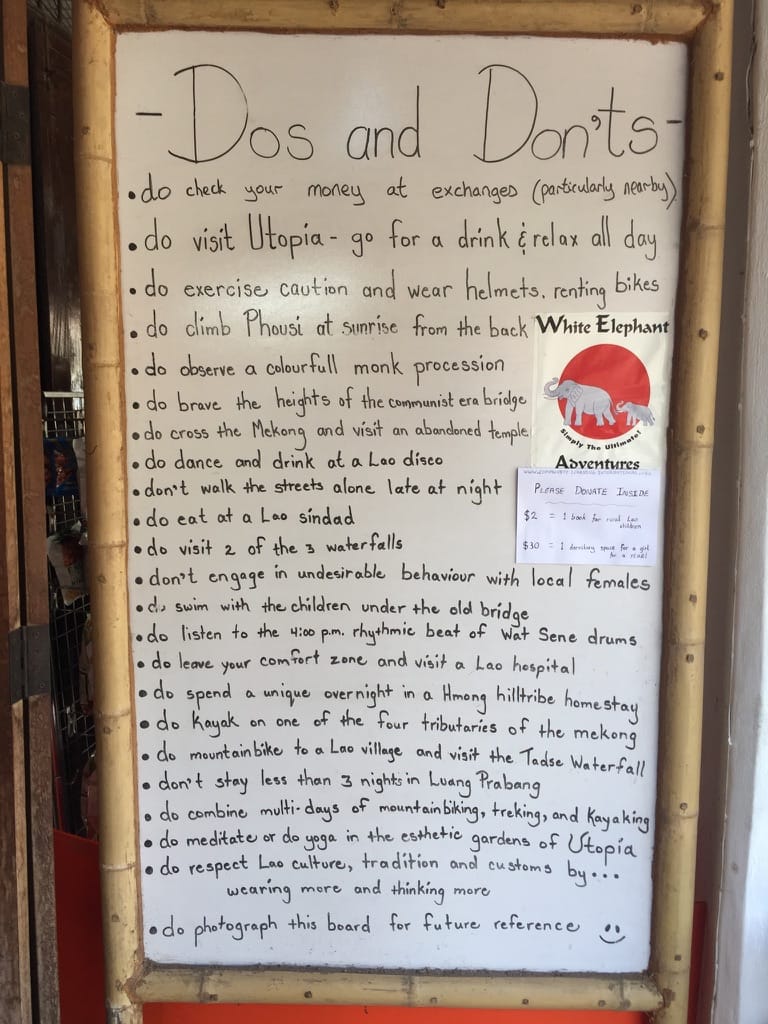 - Dos and Don'ts -
• do check your money at exchanges (particularly nearby)
• do visit Utopia - go for a drink & relax all day
• do exercise caution and wear helmets. renting bikes
• do climb Phousi at sunrise from the back
• do observe a colourfull monk procession
• do brave the heights of the communist era bridge
• do cross the Mekong and visit an abandoned temple
• do dance and drink at a Lao disco
• don't walk the streets alone late at night
• do eat at a Lao sindad
• do visit 2 of the 3 waterfalls
• don't engage in undesirable behaviour with local females
• do swim with the children under the old bridge
• do listen to the 4:00 p.m. rhythmic beat of Wat Sene drums
• do leave your comfort zone and visit a Lao hospital
• do spend a unique overnight in a Hmong hilltribe homestay
• do Kayak on one of the four tributaries of the mekong
• do mountainbike to a Lao village and visit the Tadse Waterfall
• don't stay less than 3 nights in Luang Prabang
• do combine multi-days of mountainbiking, treking, and Kayaking
• do meditate or do yoga in the esthetic gardens of Utopia
• do respect Lao culture, tradition and customs by...
wearing more and thinking more
• do photograph this board for future reference
White Elephant
Simply The Ultimate!
Adventures
PLEASE DONATE INSIDE
$2 = 1 book for rural Lao
children
$30 = 1 dormitory space for a girl
for a year!